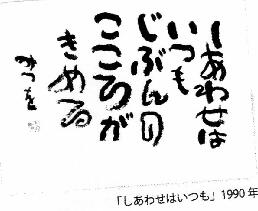 しあわせは
いつも
じぶんの
こころが
きめる
みつを
「しあわせはいつも」1990年